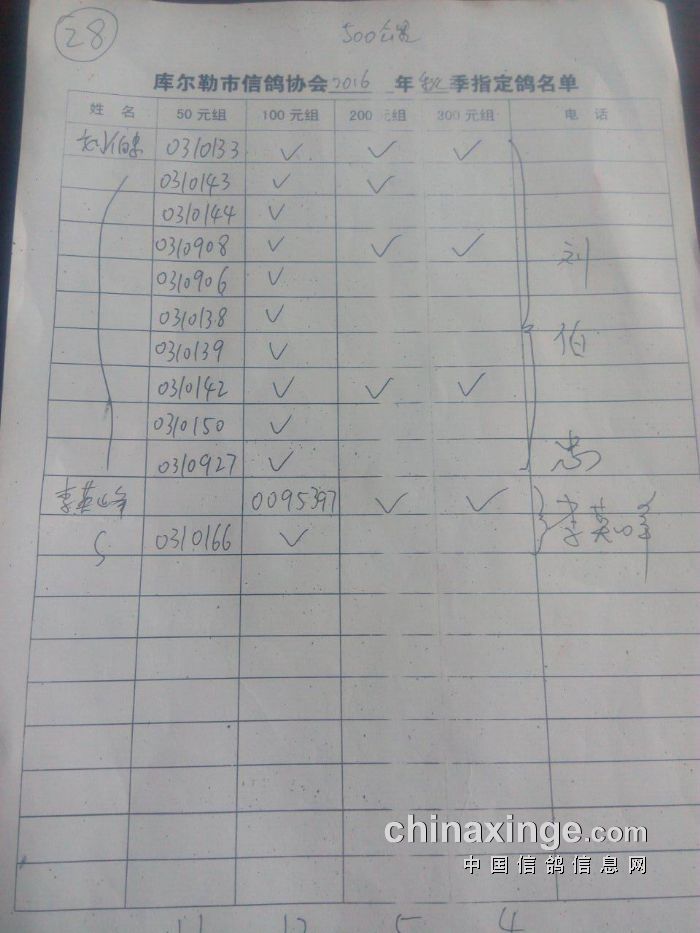 28
500公里
库尔勒市信鸽协会2016年秋季指定鸽名单
姓 名 50元组 100元组 200元组 300元组 电 话
刘伯忠 0310133 ✓ ✓ ✓
0310143 ✓ ✓
0310144 ✓
0310908 ✓ ✓ ✓
刘
0310906 ✓
0310138 ✓
0310139 ✓
伯
0310142 ✓ ✓ ✓
0310150 ✓
0310927 ✓
李英峰 0095397 ✓ ✓ 李英峰
0310166 ✓
chinaxinge.com
中国信鸽信息网
11 12 5 4